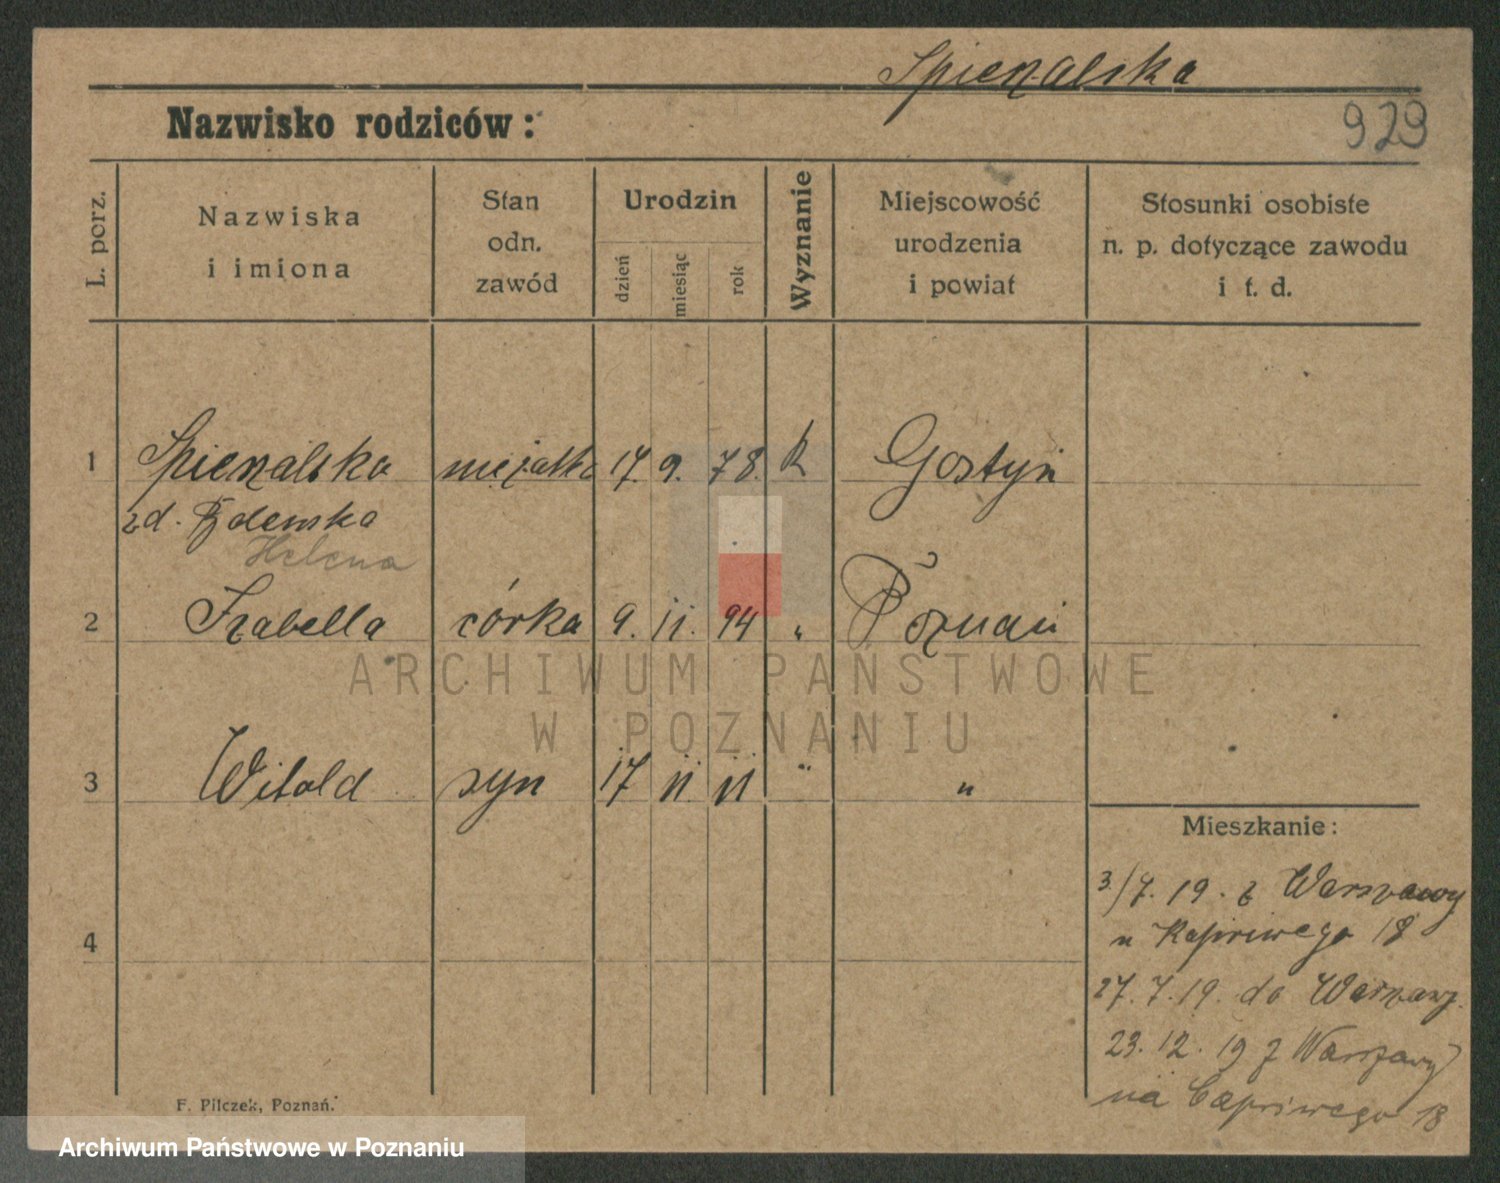 Spienalska
929
Nazwisko rodziców:
L. porz.
Nazwiska
i imiona
Stan
odn.
zawód
Urodzin
dzień
miesiąc
rok
Wyznanie
Miejscowość
urodzenia
i powiat
Stosunki osobiste
n. p. dotyczące zawodu
i t. d.
1 Spienalska mężatka 17. 9. 78. k Gostyń
zd.
Helena
2 Izabella córka 9. 11. 94 " Poznań
ARCHIWUM PAŃSTWOWE
W POZNANIU
3 Witold syn 17 11 11 " "
Mieszkanie:
3/7. 19. z Warszawy
n Kapriwego 18
4
27. 7. 19. do Warszawy.
23. 12. 19 z Warszawy
na Capriwego 18
F. Pilczek, Poznań.
Archiwum Państwowe w Poznaniu